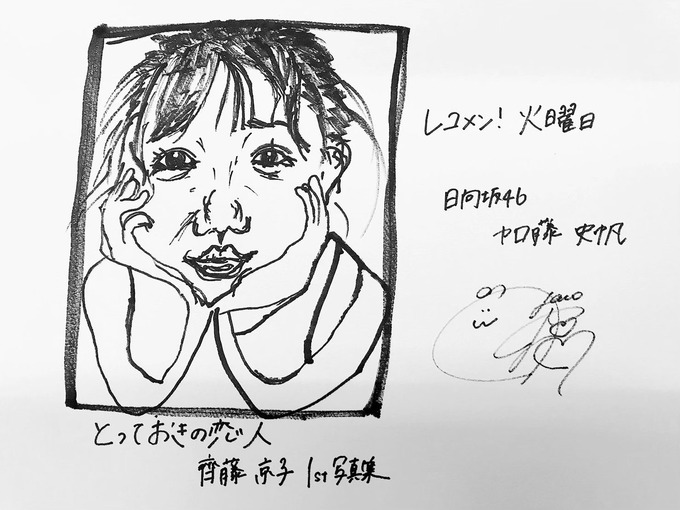 レコメン! 火曜日
日向坂46
加藤 史帆
とっておきの恋人
齊藤 京子 1st写真集